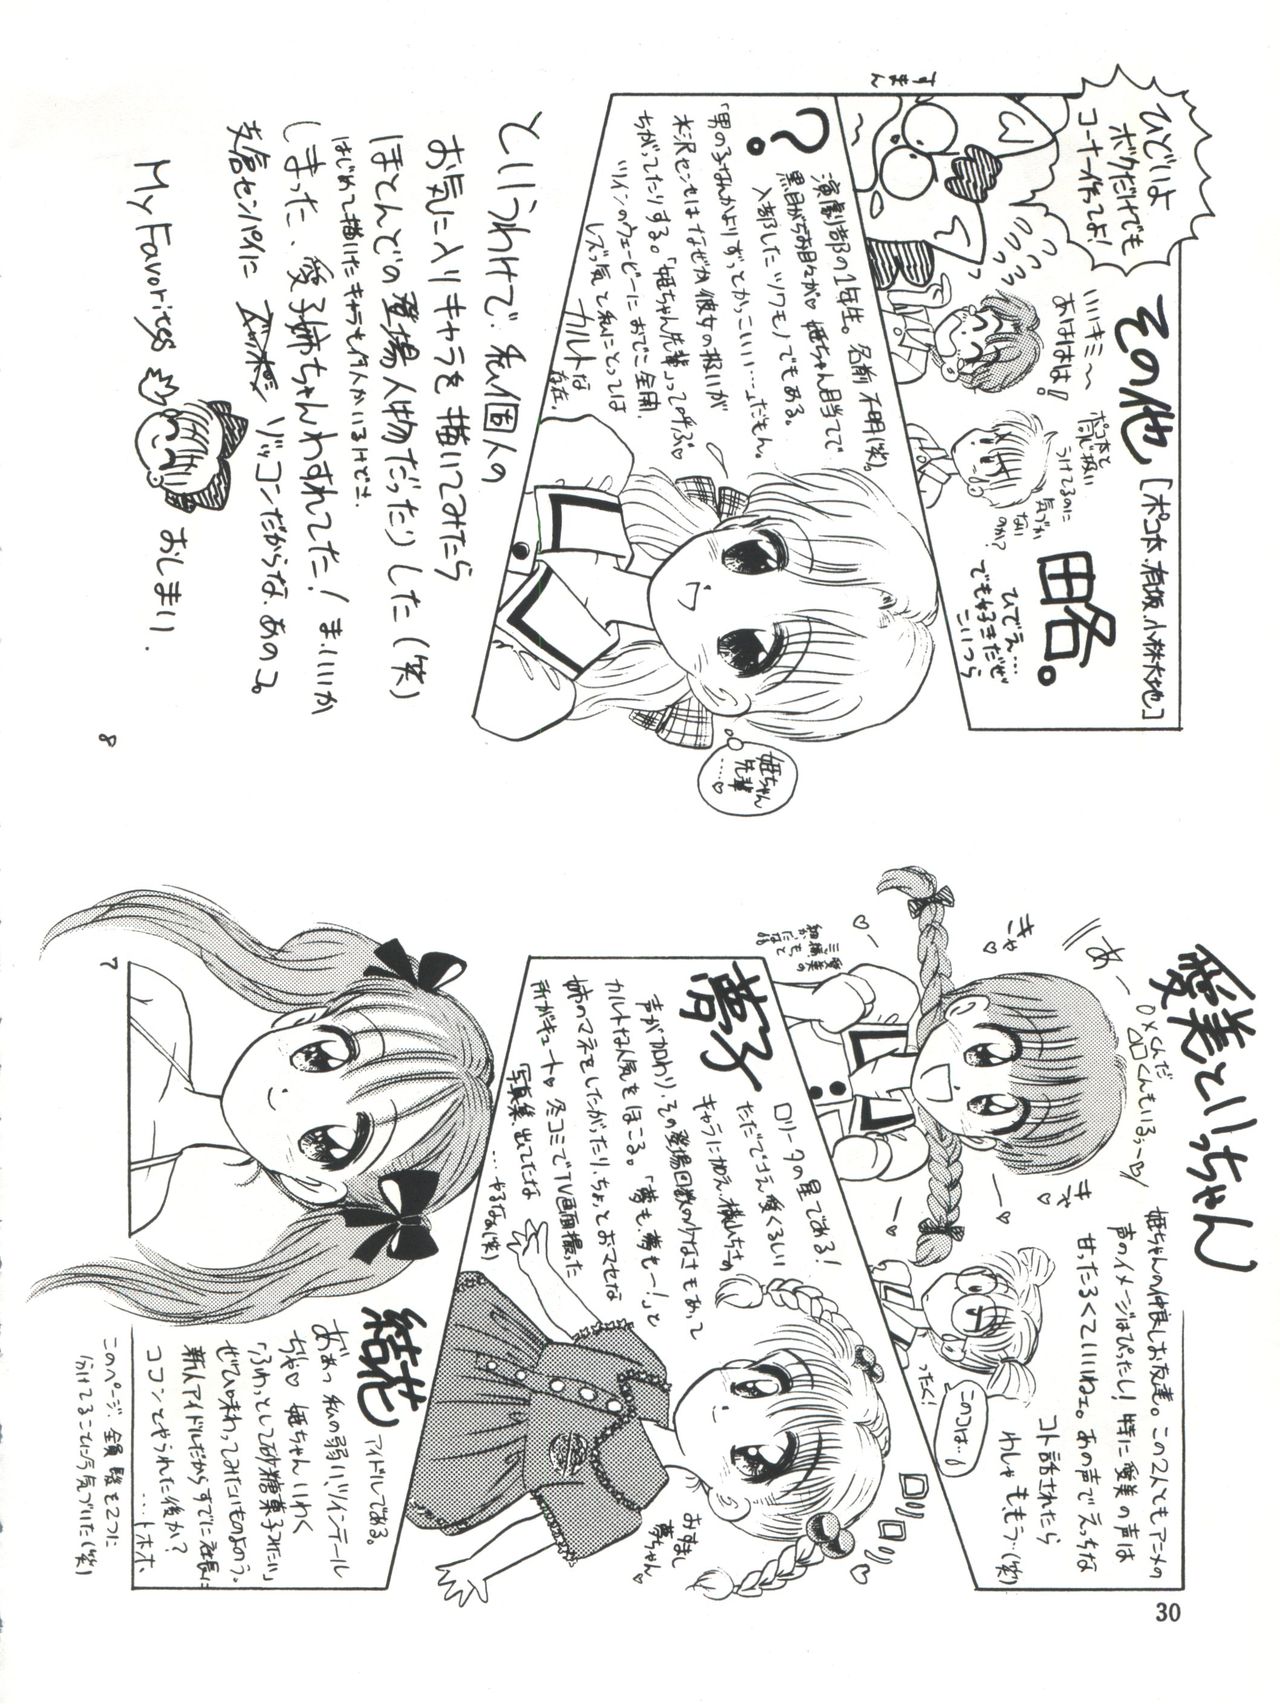 愛美といっちゃん
姫ちゃんの仲良しお友達。この2人ともアニメの
声のイメージはぴったし！特に愛美の声は
甘ったるくていいねェ。あの声でえっちな
コト話されたら
わしゃももう…(笑)
あー
○×くんだ
△□くんもいるぅ～♡
きゃ♡
きゃ♡
このコは…！
ったく！
夢子
ロリータの星である！
ただでさえ愛くるしい
キャラに加え、横山ちさの
声が加わり、その登場回数の少なさもあって
カルトな人気をほこる。「夢も、夢もー！」と
姉のマネをしたがったり、ちょっとおマセな
所がキュート♡冬コミでTV画面撮った
写真集、出てたな
…やるなぁ(笑)
おすまし
夢ちゃん♡
ロリ
ロリ♡
結花
アイドルである。
あぁっ私の弱いツインテール
ちゃん♡姫ちゃんいわく
「ふわっとして砂糖菓子みたい」
ぜひ味わってみたいものよのう。
新人アイドルだからすでに社長に
ココンとやられた後か？
…トホホ、
このページ、全員髪を2つに
分けてることに今気づいた(笑)
7
30
その他
［ポコ太、有坂、小林大地］
ひどいよ
ボクだけでも
コーナー作ってよ！
すまん
いいキミ～
あははは！
ポコ太と
同じ扱い
うけてるのに
気づか
ない
のか？
略。
ひでえ…
でも好きだぜ
こいつら
？。
演劇部の1年生。名前不明(笑)。
黒目がちなお目々が♡姫ちゃん目当てで
入部したツワモノでもある。
「男の子なんかよりずっとかっこいい…」だもん。
水沢センセはなぜか彼女の扱いが
ちがってたりする。「姫ちゃん先輩」って呼ぶ♡
ツインのウェービーにおでこ全開、
レズっ気と私にとっては
カルトな
存在。
姫ちゃん
先輩
…♡
というわけで、私個人の
お気に入りキャラを描いてみたら
ほとんどの登場人物だったりした(笑)
はじめて描いたキャラも何人かいるけどさ。
しまった、愛子姉ちゃんわすれてた！ま、いいか
支倉センパイに ゾッコンだからな、あのコ。
My Favorites
おしまい.
8